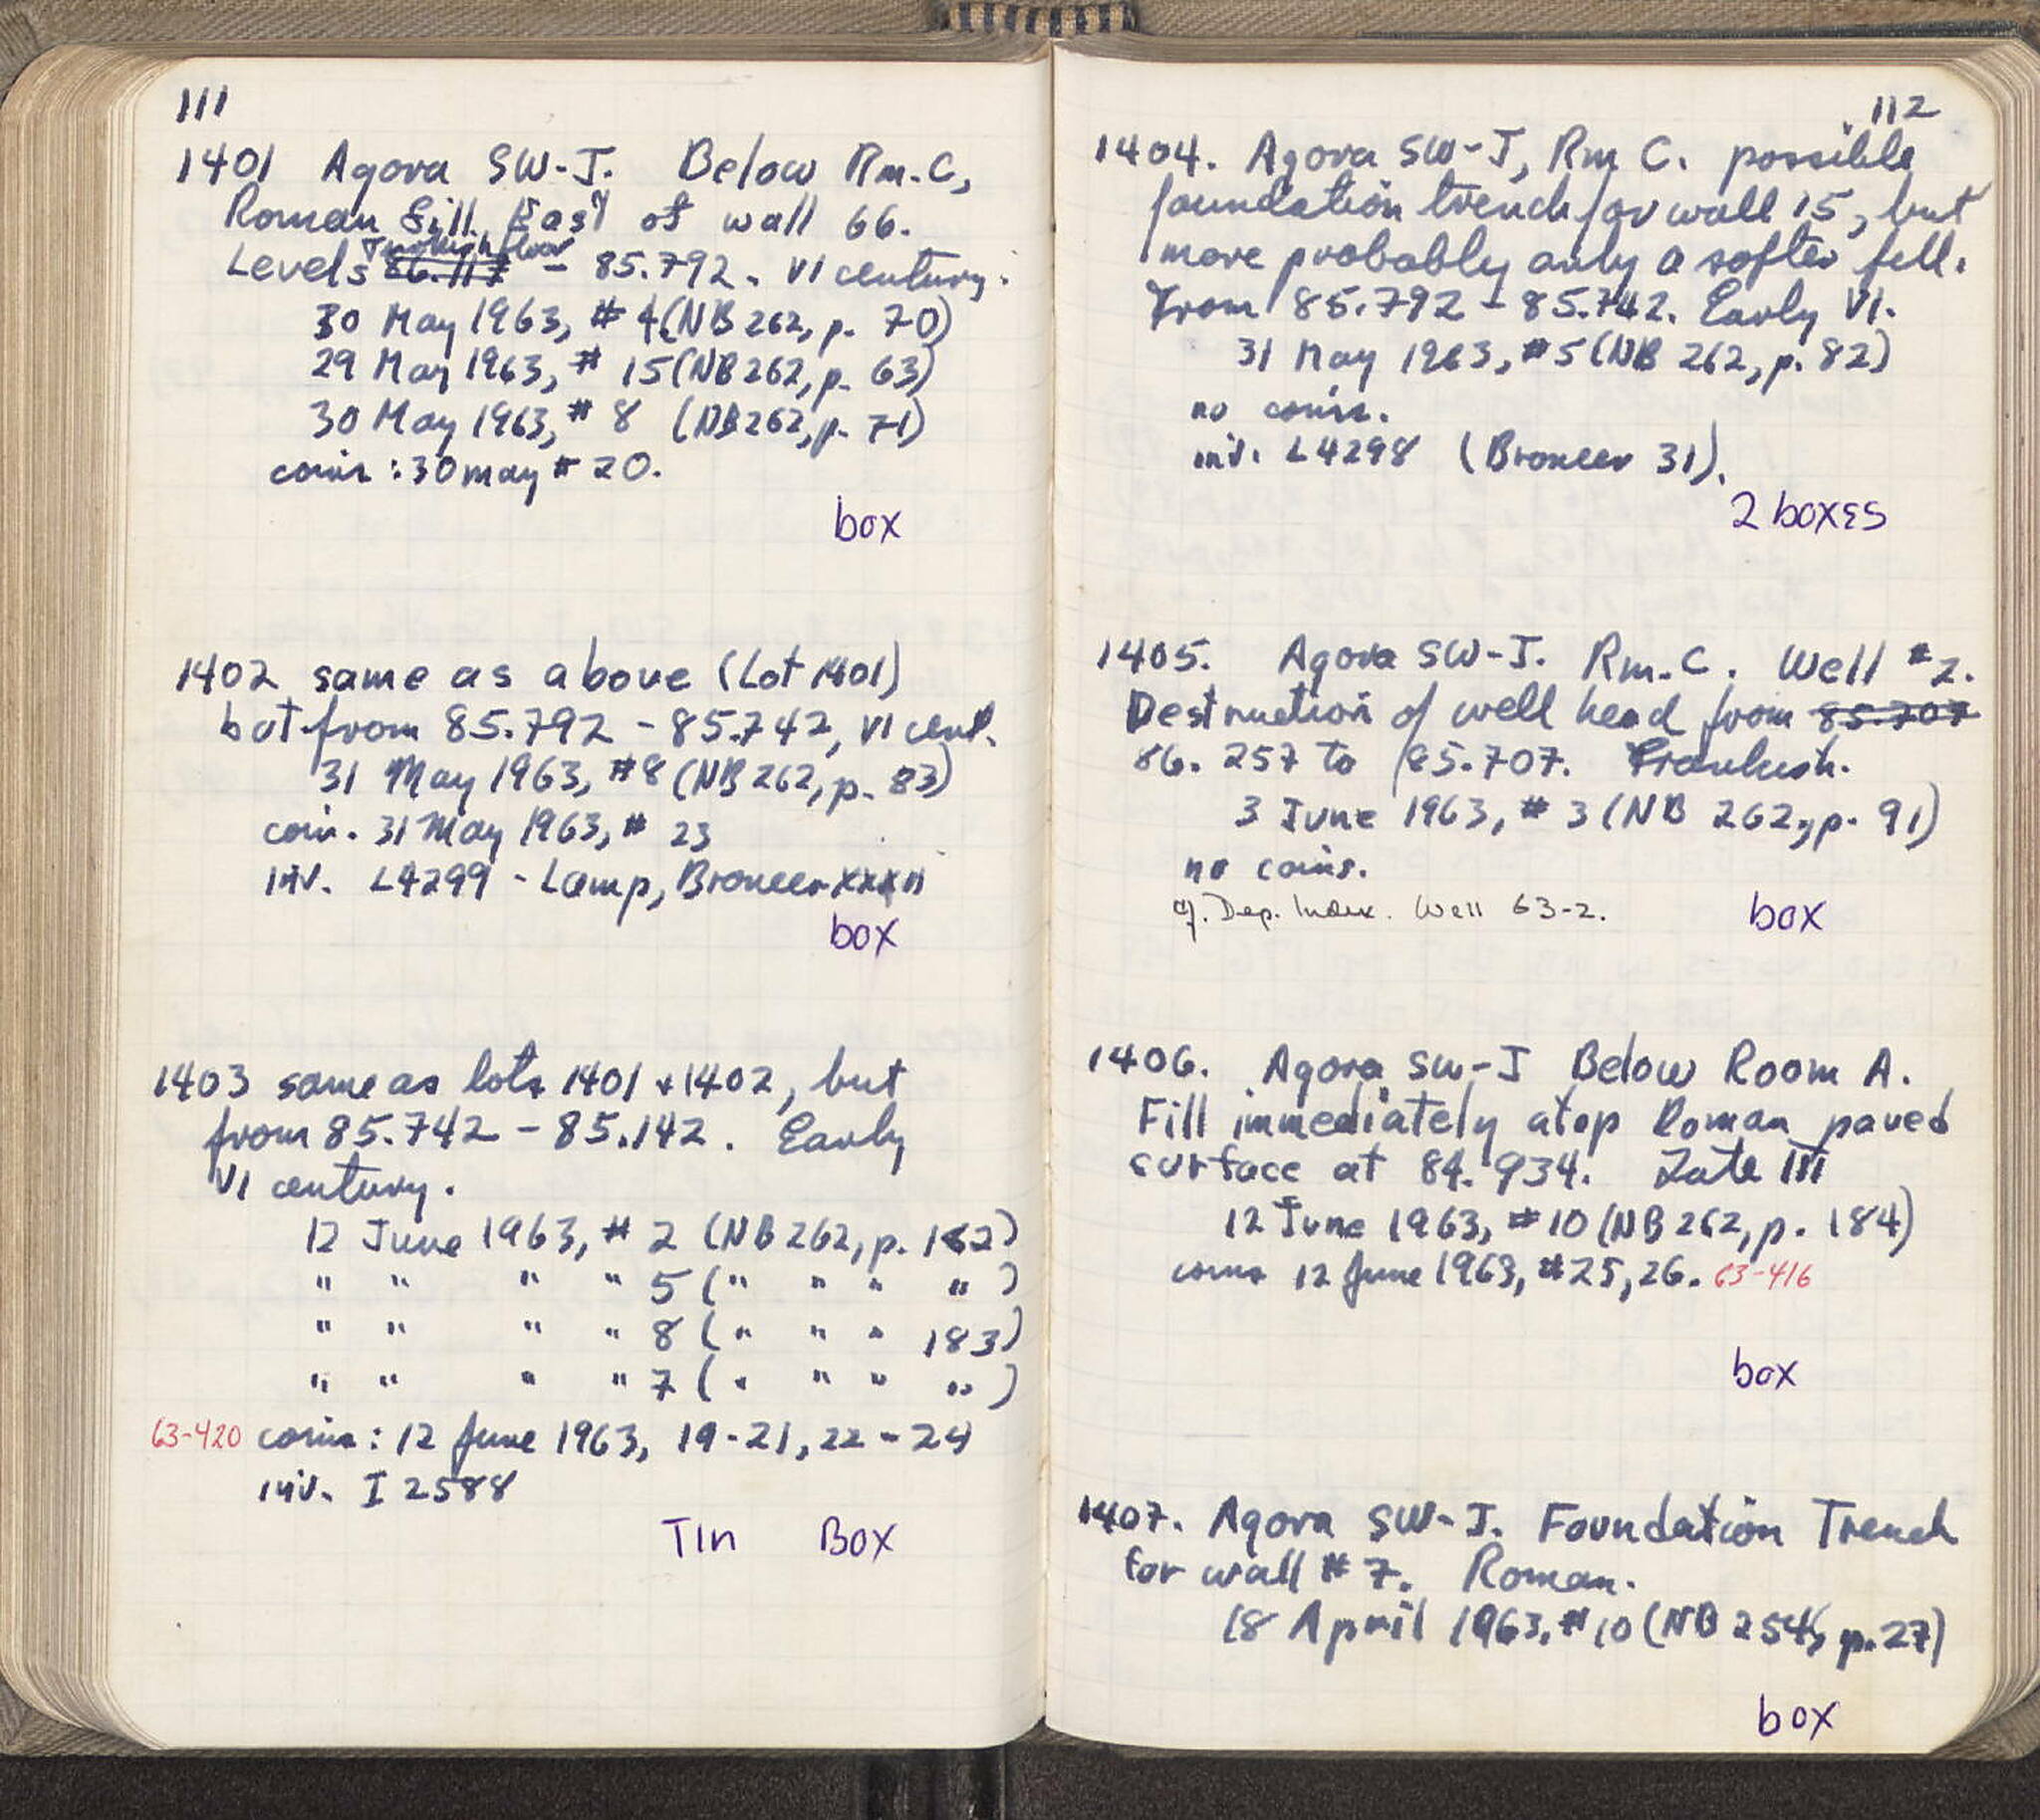 111
1401 Agora SW-J. Below Rm. C,
Roman fill East of wall 66.
Levels 86.117 Through floor - 85.792. VI century.
30 May 1963, # 4 (NB 262, p. 70)
29 May 1963, # 15 (NB 262, p. 63)
30 May 1963, # 8 (NB 262, p. 71)
coins: 30 may # 20.
box
1402 same as above (Lot 1401)
but from 85.792 - 85.742, VI cent.
31 May 1963, #8 (NB 262, p. 83)
coin. 31 May 1963, # 23
inv. L4299 - Lamp, Broneer
box
1403 same as lots 1401 + 1402, but
from 85.742 - 85.142. Early
VI century.
12 June 1963, # 2 (NB 262, p. 182)
" " " " 5 (" " " ")
" " " " 8 (" " " 183)
" " " " 7 (" " " ")
63-420 coins: 12 June 1963, 19-21, 22-24
inv. I 2588
Tin Box
112
1404. Agora SW-J, Rm C. possible
foundation trench for wall 15, but
more probably only a softer fill.
From 85.792 - 85.742. Early VI.
31 May 1963, #5 (NB 262, p. 82)
no coins.
inv. L4298 (Broneer 31).
2 boxes
1405. Agora SW-J. Rm. C. Well #2.
Destruction of well head from 85.707
86.257 to 85.707. Frankish.
3 June 1963, # 3 (NB 262, p. 91)
no coins.
cf. Dep. Index. Well 63-2.
box
1406. Agora SW-J Below Room A.
Fill immediately atop Roman paved
surface at 84.934. Late III
12 June 1963, #10 (NB 262, p. 184)
coins 12 June 1963, #25, 26. 63-416
box
1407. Agora SW-J. Foundation Trench
for wall # 7. Roman.
18 April 1963, #10 (NB 254, p. 27)
box